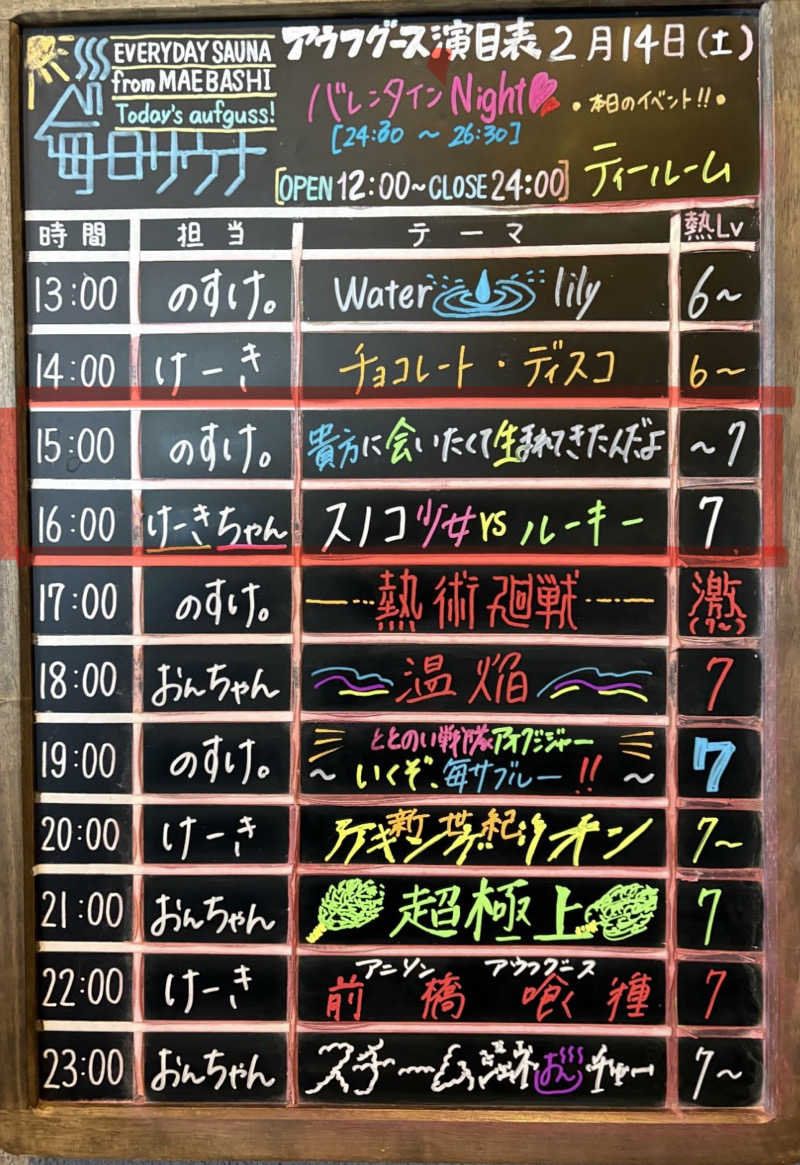 EVERYDAY SAUNA
from MAEBASHI
Today's aufguss!
毎日サウナ
アウフグース演目表 2月14日(土)
バレンタイン Night
•本日のイベント!!•
[24:30 ~ 26:30]
[OPEN 12:00~CLOSE 24:00] ティールーム
時間 担当 テーマ 熱Lv
13:00 のすけ。 Water lily 6~
14:00 けーき チョコレート・ディスコ 6~
15:00 のすけ。 貴方に会いたくて生まれてきたんだよ ~7
16:00 けーきちゃん スノコ少女 vs ルーキー 7
17:00 のすけ。 熱術廻戦 激(7~)
18:00 おんちゃん 温焔 7
19:00 のすけ。 ととのい戦隊アオグジャー
~いくぞ、毎サブルー!!~ 7
20:00 けーき 新世紀 7~
21:00 おんちゃん 超極上 7
22:00 けーき アニソン アウフグース
前橋 喰種 7
23:00 おんちゃん スチームジェネおんチャー 7~